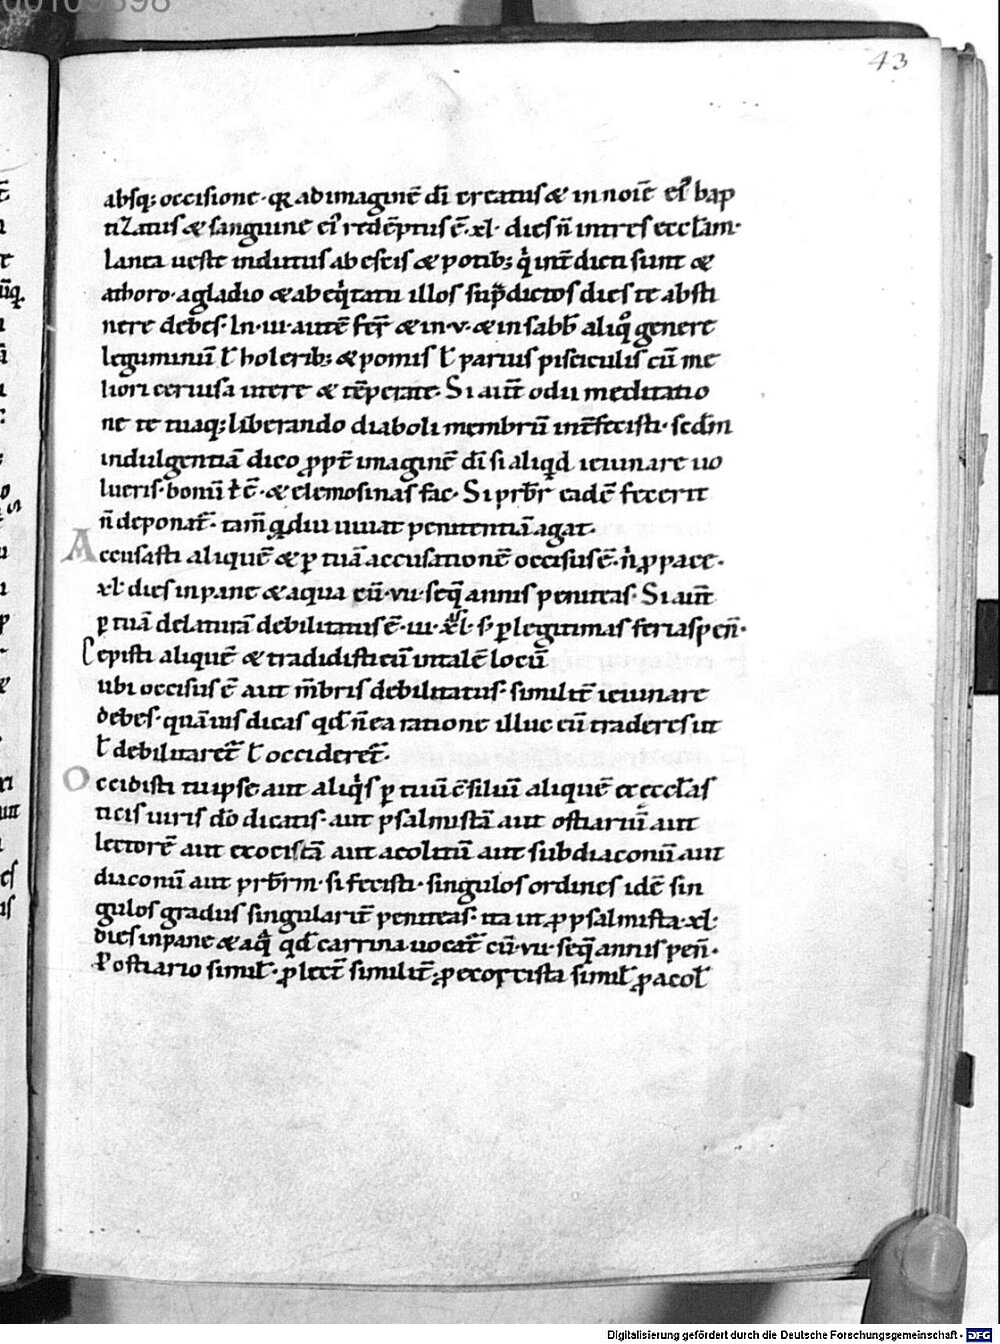 00109398
43
absq; occisione · qꝛ ad imaginē dī creatus & in noīe ei᾽ bap
tizatus & sanguine ei᾽ redēptus ē · xl · dies ñ intres eccłam ·
Lanea ueste indutus ab escis & potib; q̇ int̄dicti sunt &
a thoro · a gladio & ab eq̇tatu illos sup̄dictos dies te absti
nere debes · In · iii · autē fer̄ & in · v · & in sabb̄ aliq̊ genere
leguminū ł holerib; & pomis ł paruis pisciculis cū me
diocri ceruisa utere & tēperate · Si aut̄ odii meditatio
ne te tuaq; liberando diaboli membrū int̄fecisti · scd̄m
indulgentiā dico ꝓpt̄ imaginē dī si aliqd̄ ieiunare uo
lueris · bonū t̄ ē · & elemosinas fac · Si prb̄r eadē fecerit
ñ deponat̄ · tam̄ qdiu uiuat penitentiā agat ·
Accusasti aliquē & ꝑ tuā accusationē occisus ē · n̊ ꝓ pace ·
xl · dies in pane & aqua cū · vii · seq̄ annis peniteas · Si aut̄
ꝑ tuā delaturā debilitatus ē · iii · xl · s᾽ ꝑ legitimas ferias peñ ·
Cepisti aliquē & tradidisti eū in talē locū
ubi occisus ē aut m̄bris debilitatus · similit̄ ieiunare
debes · quāuis dicas qd̄ ñ ea ratione illuc eū traderes ut
ł debilitaret̄ ł occideret̄ ·
Occidisti tu ipse aut aliq̇s ꝑ tuū c̄siliū aliquē ex eccłas
ticis uiris dō dicatis · aut psalmistā aut ostiariū aut
lectorē aut exorcistā aut acolitū aut subdiaconū aut
diaconū aut prb̄rm · si fecisti · singulos ordines idē sin
gulos gradus singularit̄ peniteas · ita ut ꝓ psalmista · xl ·
dies in pane & aq̄ qd̄ carrina uocat̄ cū · vii · seq̄ annis peñ ·
Ꝓ ostiario simił · ꝓ lect̄ similit̄ · ꝓ exorcista simił ꝓ acoł
Digitalisierung gefördert durch die Deutsche Forschungsgemeinschaft - DFG